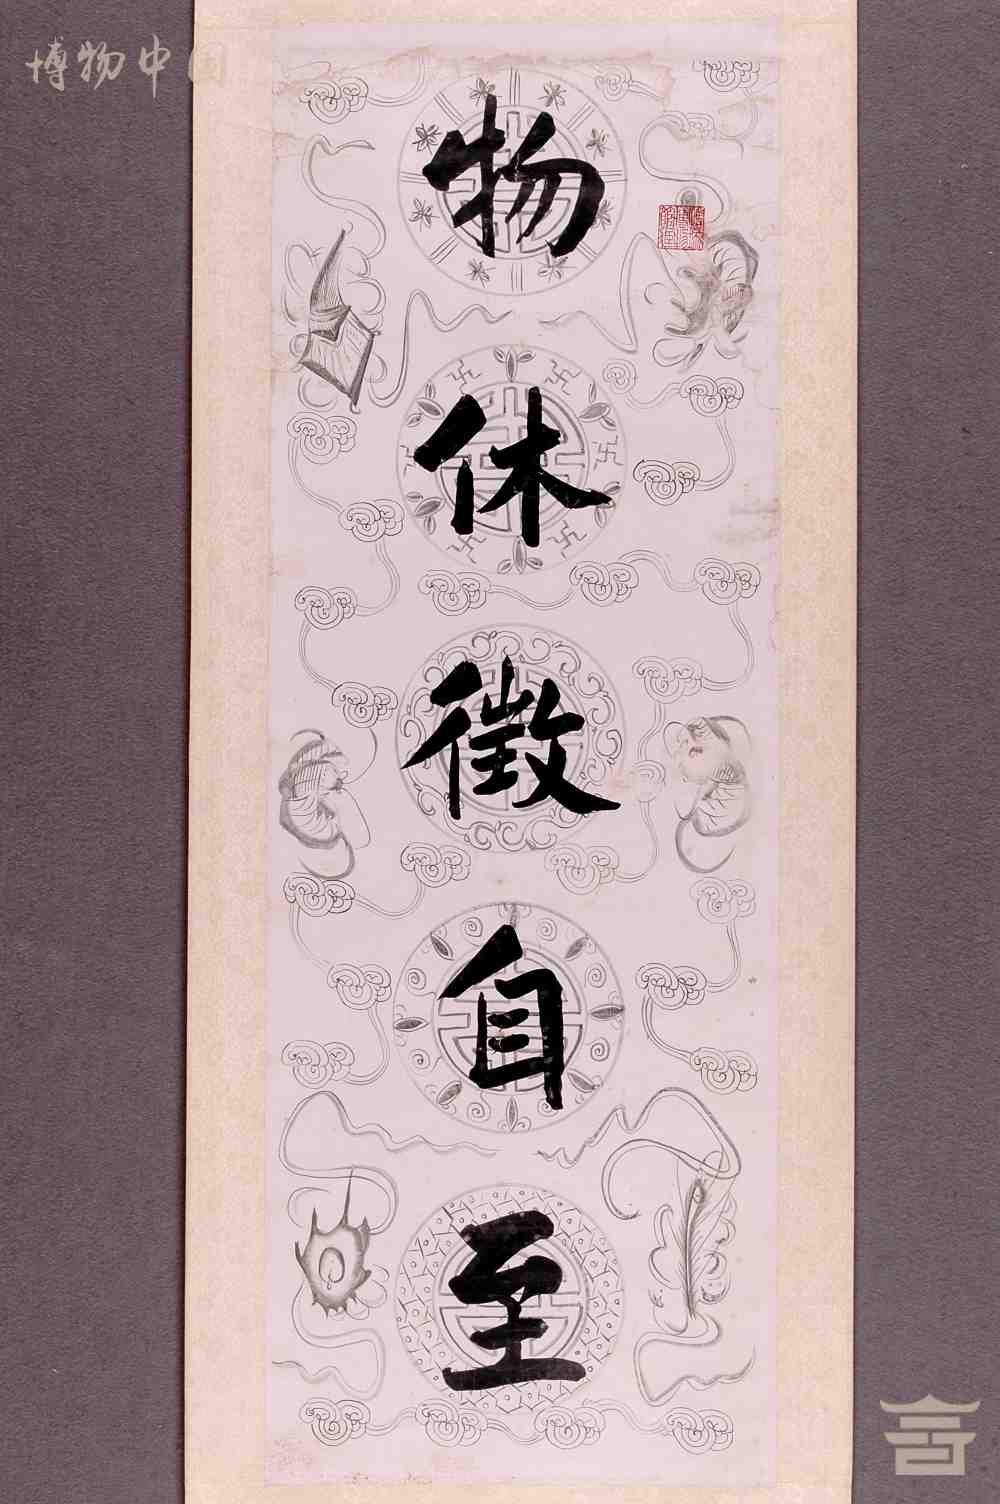 博物中国
物休徵自至